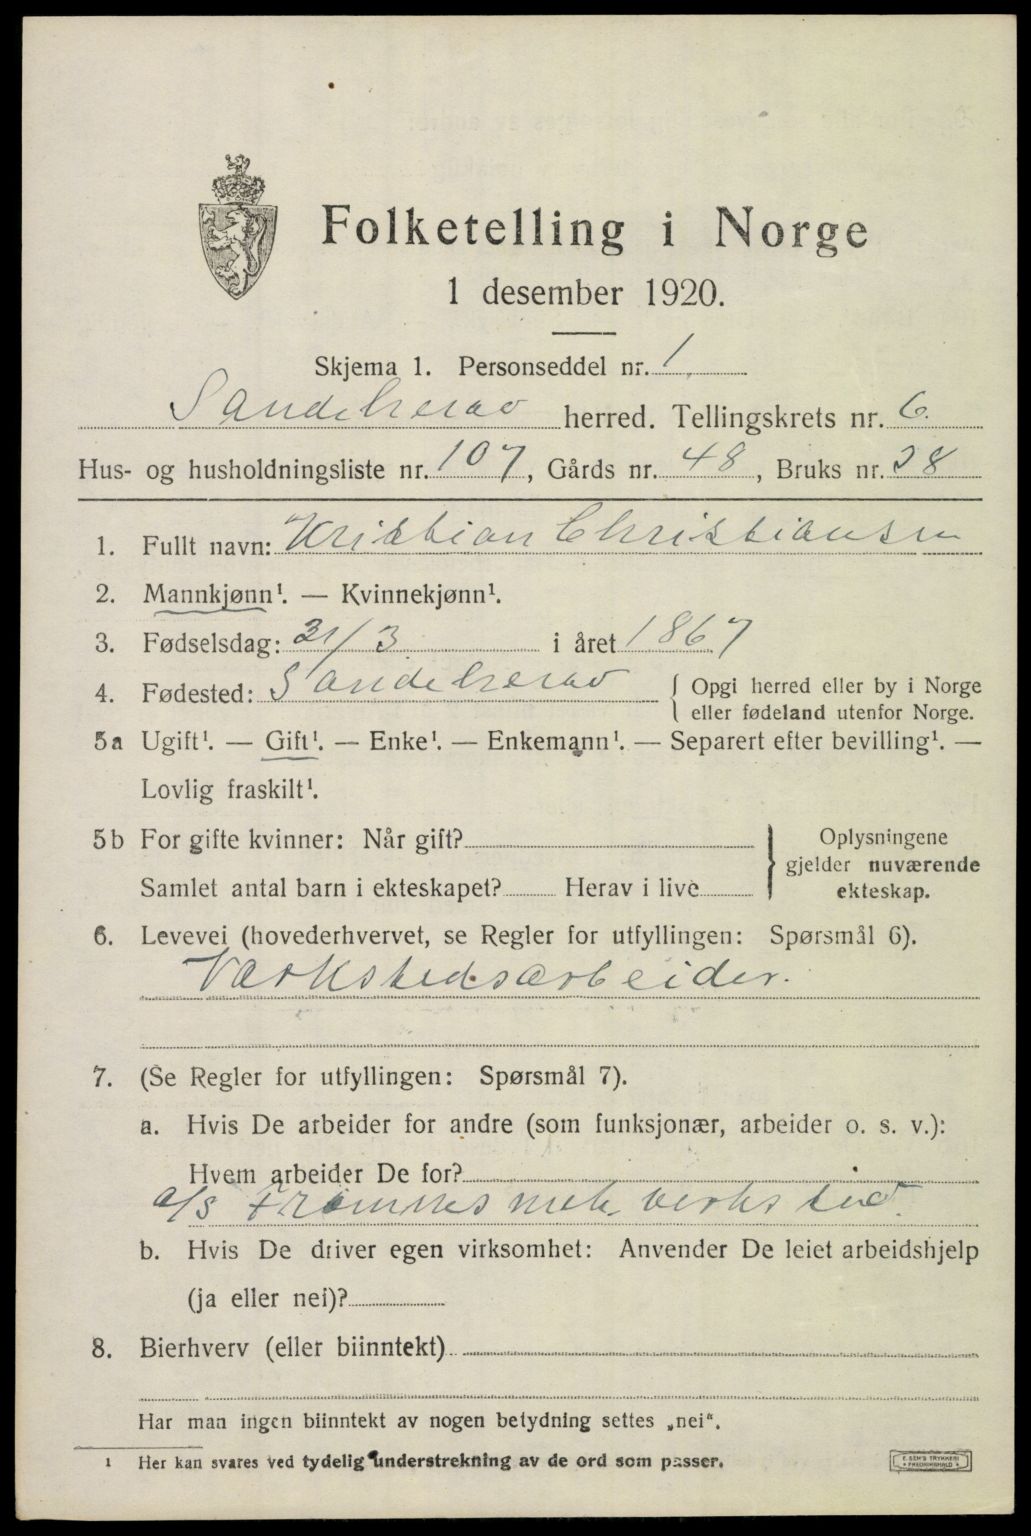 Folketelling i Norge
1 desember 1920.
Skjema 1. Personseddel nr. 1
Sandeherad herred. Tellingskrets nr. 6.
Hus- og husholdningsliste nr. 107, Gårds nr. 48, Bruks nr. 28
1. Fullt navn: Kristian Christiansen
2. Mannkjønn¹. — Kvinnekjønn¹.
3. Fødselsdag: 31/3 i året 1867
4. Fødested: Sandeherad { Opgi herred eller by i Norge
eller fødeland utenfor Norge.
5a Ugift¹. — Gift¹. — Enke¹. — Enkemann¹. — Separert efter bevilling¹. —
Lovlig fraskilt¹.
5b For gifte kvinner: Når gift? } Oplysningene
gjelder nuværende
Samlet antal barn i ekteskapet? Herav i live ekteskap.
6. Levevei (hovederhvervet, se Regler for utfyllingen: Spørsmål 6).
Værkstedsarbeider.
7. (Se Regler for utfyllingen: Spørsmål 7).
a. Hvis De arbeider for andre (som funksjonær, arbeider o. s. v.):
Hvem arbeider De for?
a/s Framnes mek. verksted.
b. Hvis De driver egen virksomhet: Anvender De leiet arbeidshjelp
(ja eller nei)?
8. Bierhverv (eller biinntekt)
Har man ingen biinntekt av nogen betydning settes „nei“.
¹ Her kan svares ved tydelig understrekning av de ord som passer.
E. SEM'S TRYKKERI
FREDRIKSHALD